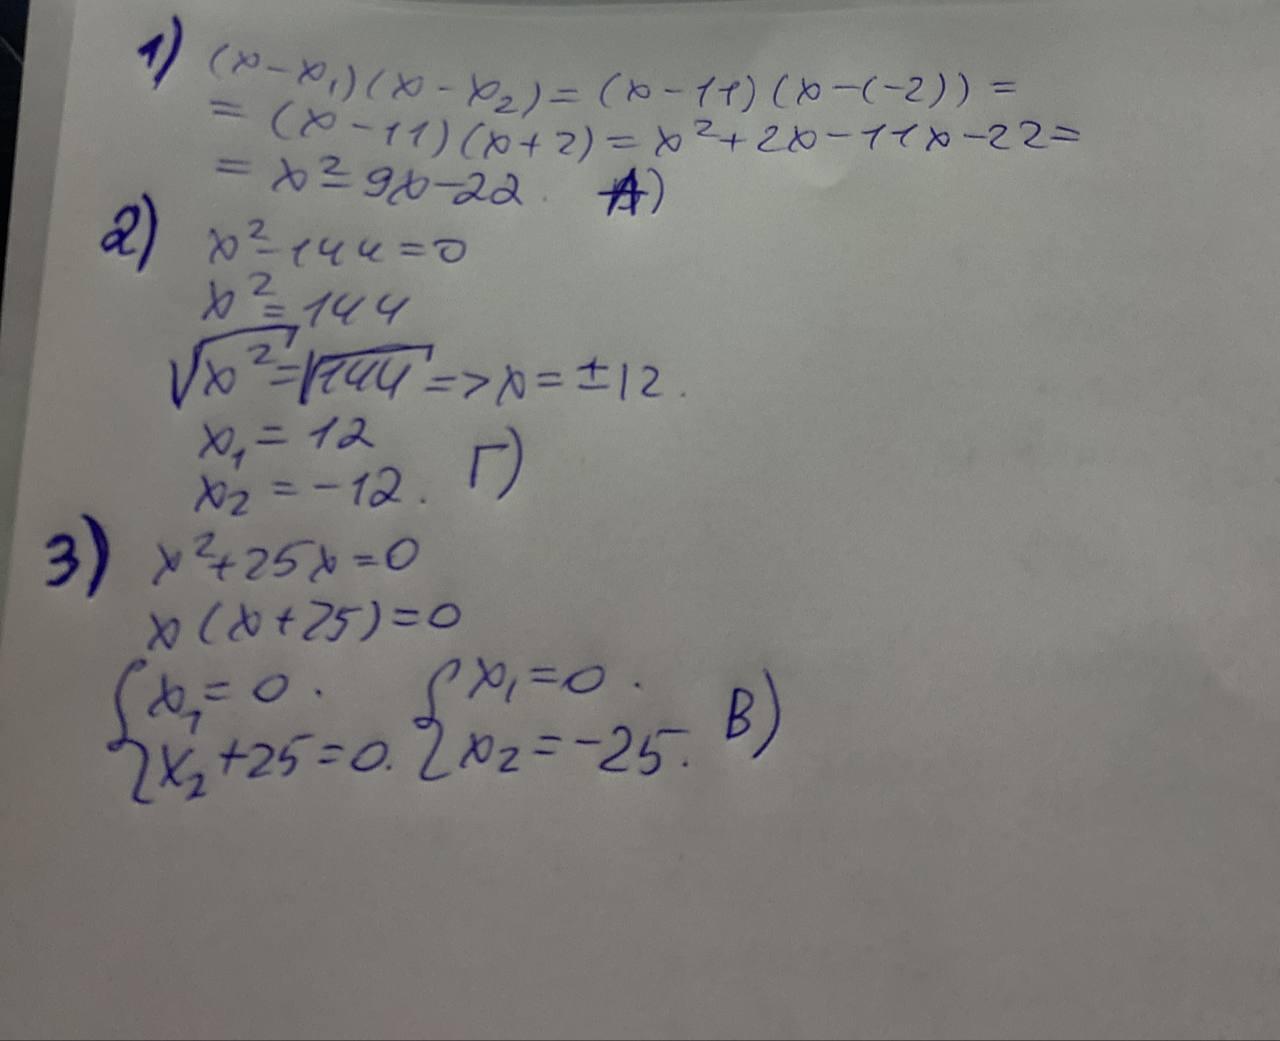 1) (x-x₁)(x-x₂)=(x-11)(x-(-2))=
=(x-11)(x+2)=x²+2x-11x-22=
=x²-9x-22. А)
2) x²-144=0
x²=144
√x²=√144=>x=±12.
x₁=12
x₂=-12. Г)
3) x²+25x=0
x(x+25)=0
{x₁=0. {x₁=0. В)
{x₂+25=0. {x₂=-25.